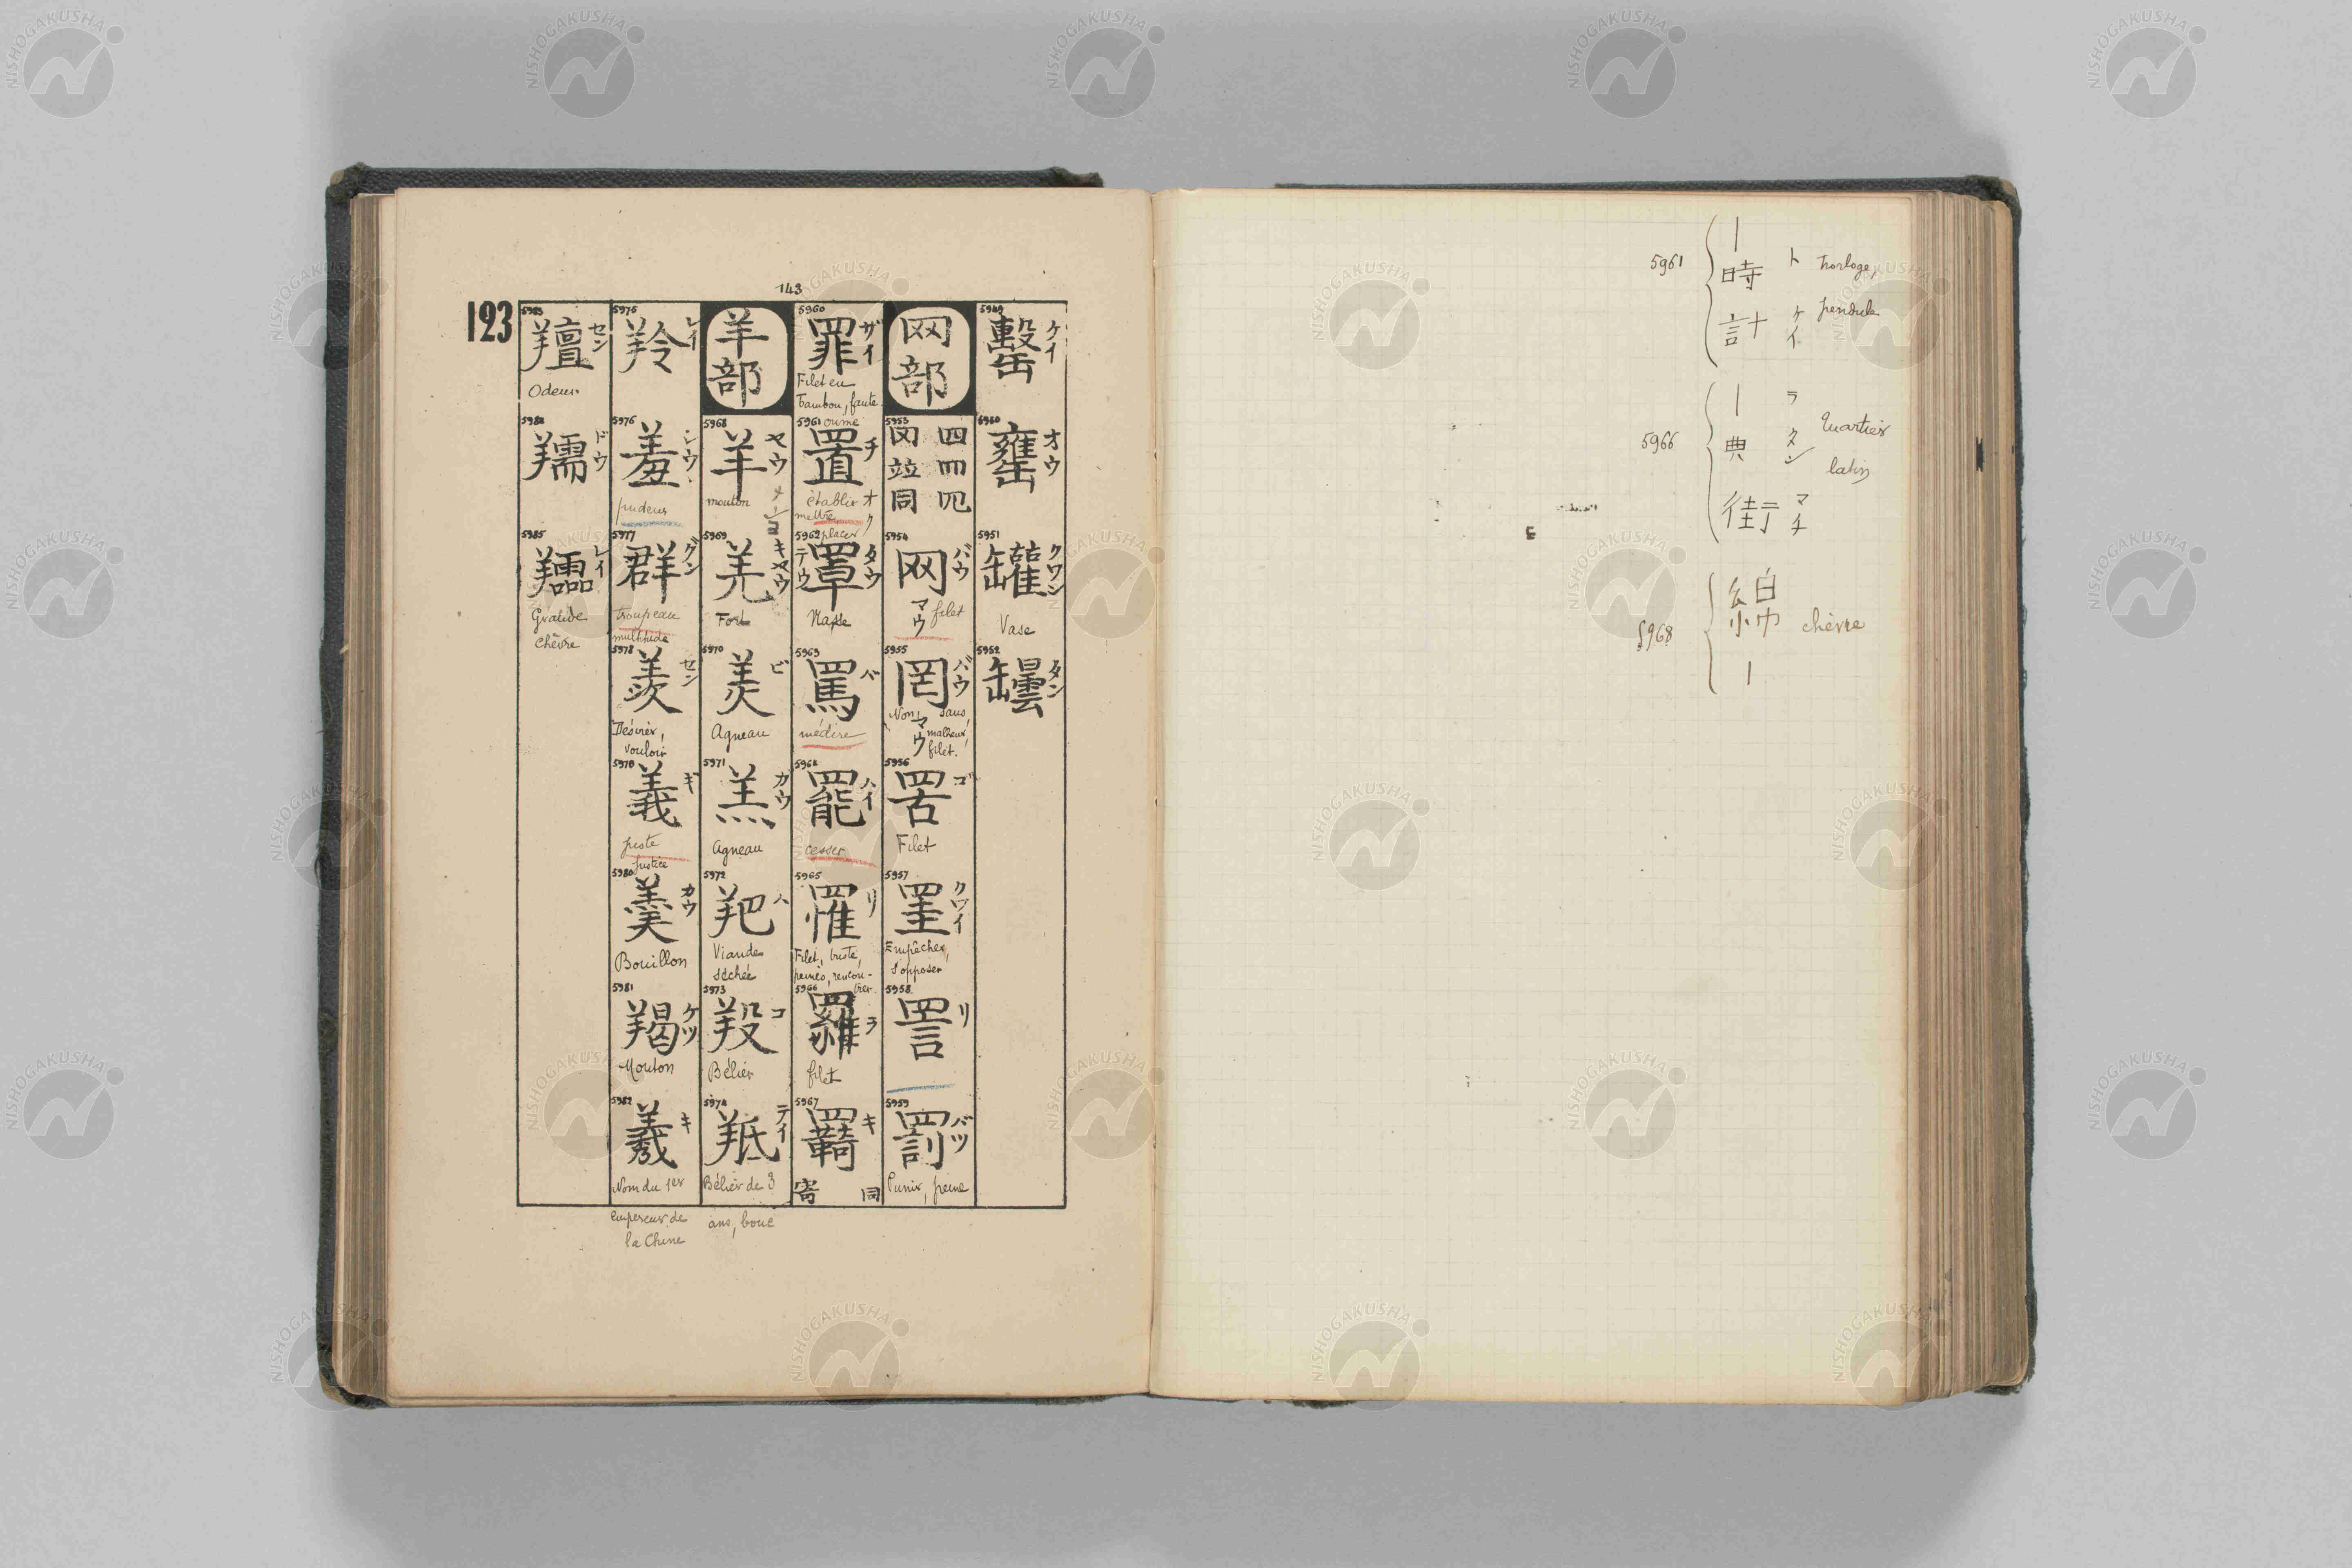 143
123
5949
罊
ケイ
5950
罋
オウ
5951
罐
クワン
Vase
5952
罎
タン
网部
5953
四
罓
𦉰
同
5954
网
バウ
マウ
filet
5955
罔
バウ
マウ
Non, sans,
malheur,
filet.
5956
罟
ゴ
Filet
5957
罣
クワイ
Empêcher,
s'opposer
5958
詈
リ
5959
罰
バツ
Punir, peine
5960
罪
ザイ
Filet en
bambou, faute
5961
置
チ
オク
établir
mettre
placer
5962
罩
タウ
テウ
Nasse
5963
罵
バ
médire
5964
罷
ハイ
cesser
5965
罹
リ
Filet, triste,
peines, rencon-
trer
5966
羅
ラ
filet
5967
羇
キ
同
羊部
5968
羊
ヤウ
mouton
5969
羌
キヤウ
Fort
5970
羙
ビ
Agneau
5971
羔
カウ
Agneau
5972
羓
ハ
Viande
séchée
5973
羖
コ
Bélier
5974
羝
テイ
Bélier de 3
ans, bouc
5975
羚
レイ
5976
羞
シウ
pudeur
5977
群
グン
troupeau
multitude
5978
羨
セン
Désirer,
vouloir
5979
義
ギ
juste
justice
5980
羹
カウ
Bouillon
5981
羯
ケツ
Mouton
5982
羲
キ
Nom du 1er
empereur de
la Chine
5983
羶
セン
Odeur
5984
羺
ドウ
5985
羺
レイ
Grande
chèvre
5961
丨時計
トケイ
horloge,
pendule
5966
丨典街
ラタン
マチ
Quartier
latin
5968
綿丨
chèvre